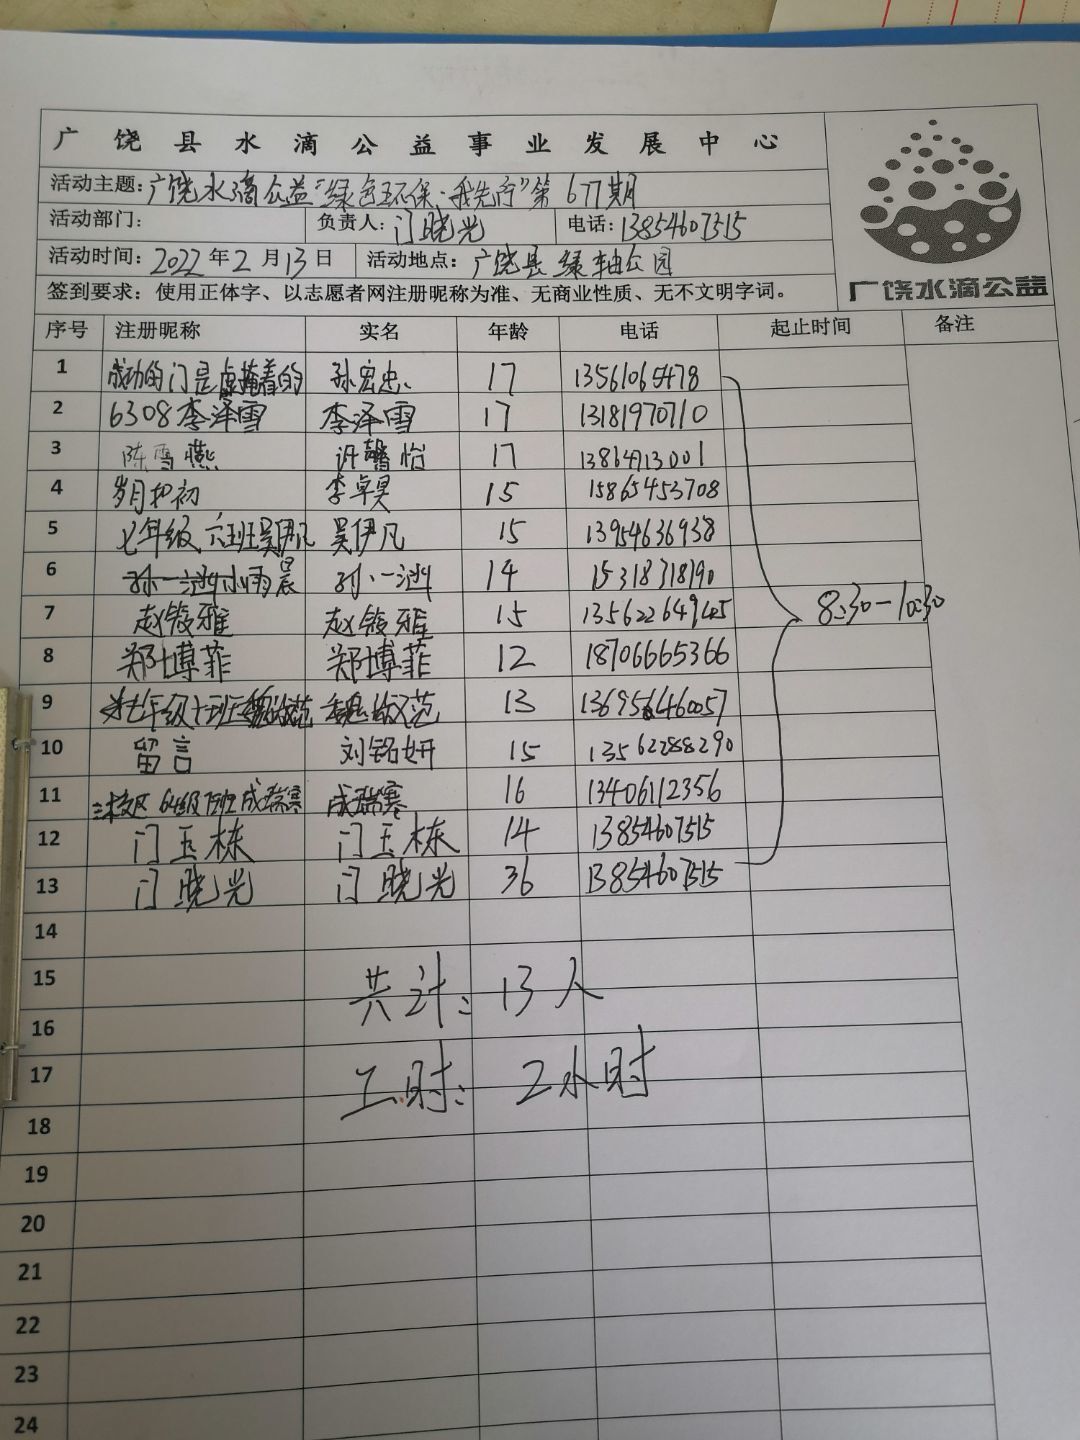 广饶县水滴公益事业发展中心
活动主题:广饶水滴公益“绿色环保·我先行”第677期
活动部门: 负责人:门晓光 电话:13854607515
活动时间:2022年2月13日 活动地点:广饶县绿轴公园
签到要求:使用正体字、以志愿者网注册昵称为准、无商业性质、无不文明字词。
广饶水滴公益
序号 注册昵称 实名 年龄 电话 起止时间 备注
1 成功的门是虚掩着的 孙宏忠 17 13561065478
2 6308李泽雪 李泽雪 17 13181970710
3 陈雪燕 许馨怡 17 13864713001
4 岁月如初 李卓昊 15 15865453708
5 七年级六班吴伊凡 吴伊凡 15 13954636938
6 孙一 孙一 14 15318318190
7 赵筱雅 赵筱雅 15 13562264945
8:30-10:30
8 郑博菲 郑博菲 12 18706665366
9 七年级十班 范 13 136956460057
10 留言 刘铭妍 15 13562288290
11 三校区 级 班成瑞寒 成瑞寒 16 13406112356
12 门玉栋 门玉栋 14 13854607515
13 门晓光 门晓光 36 13854607515
14
15
共计:13人
16
17
工时:2小时
18
19
20
21
22
23
24